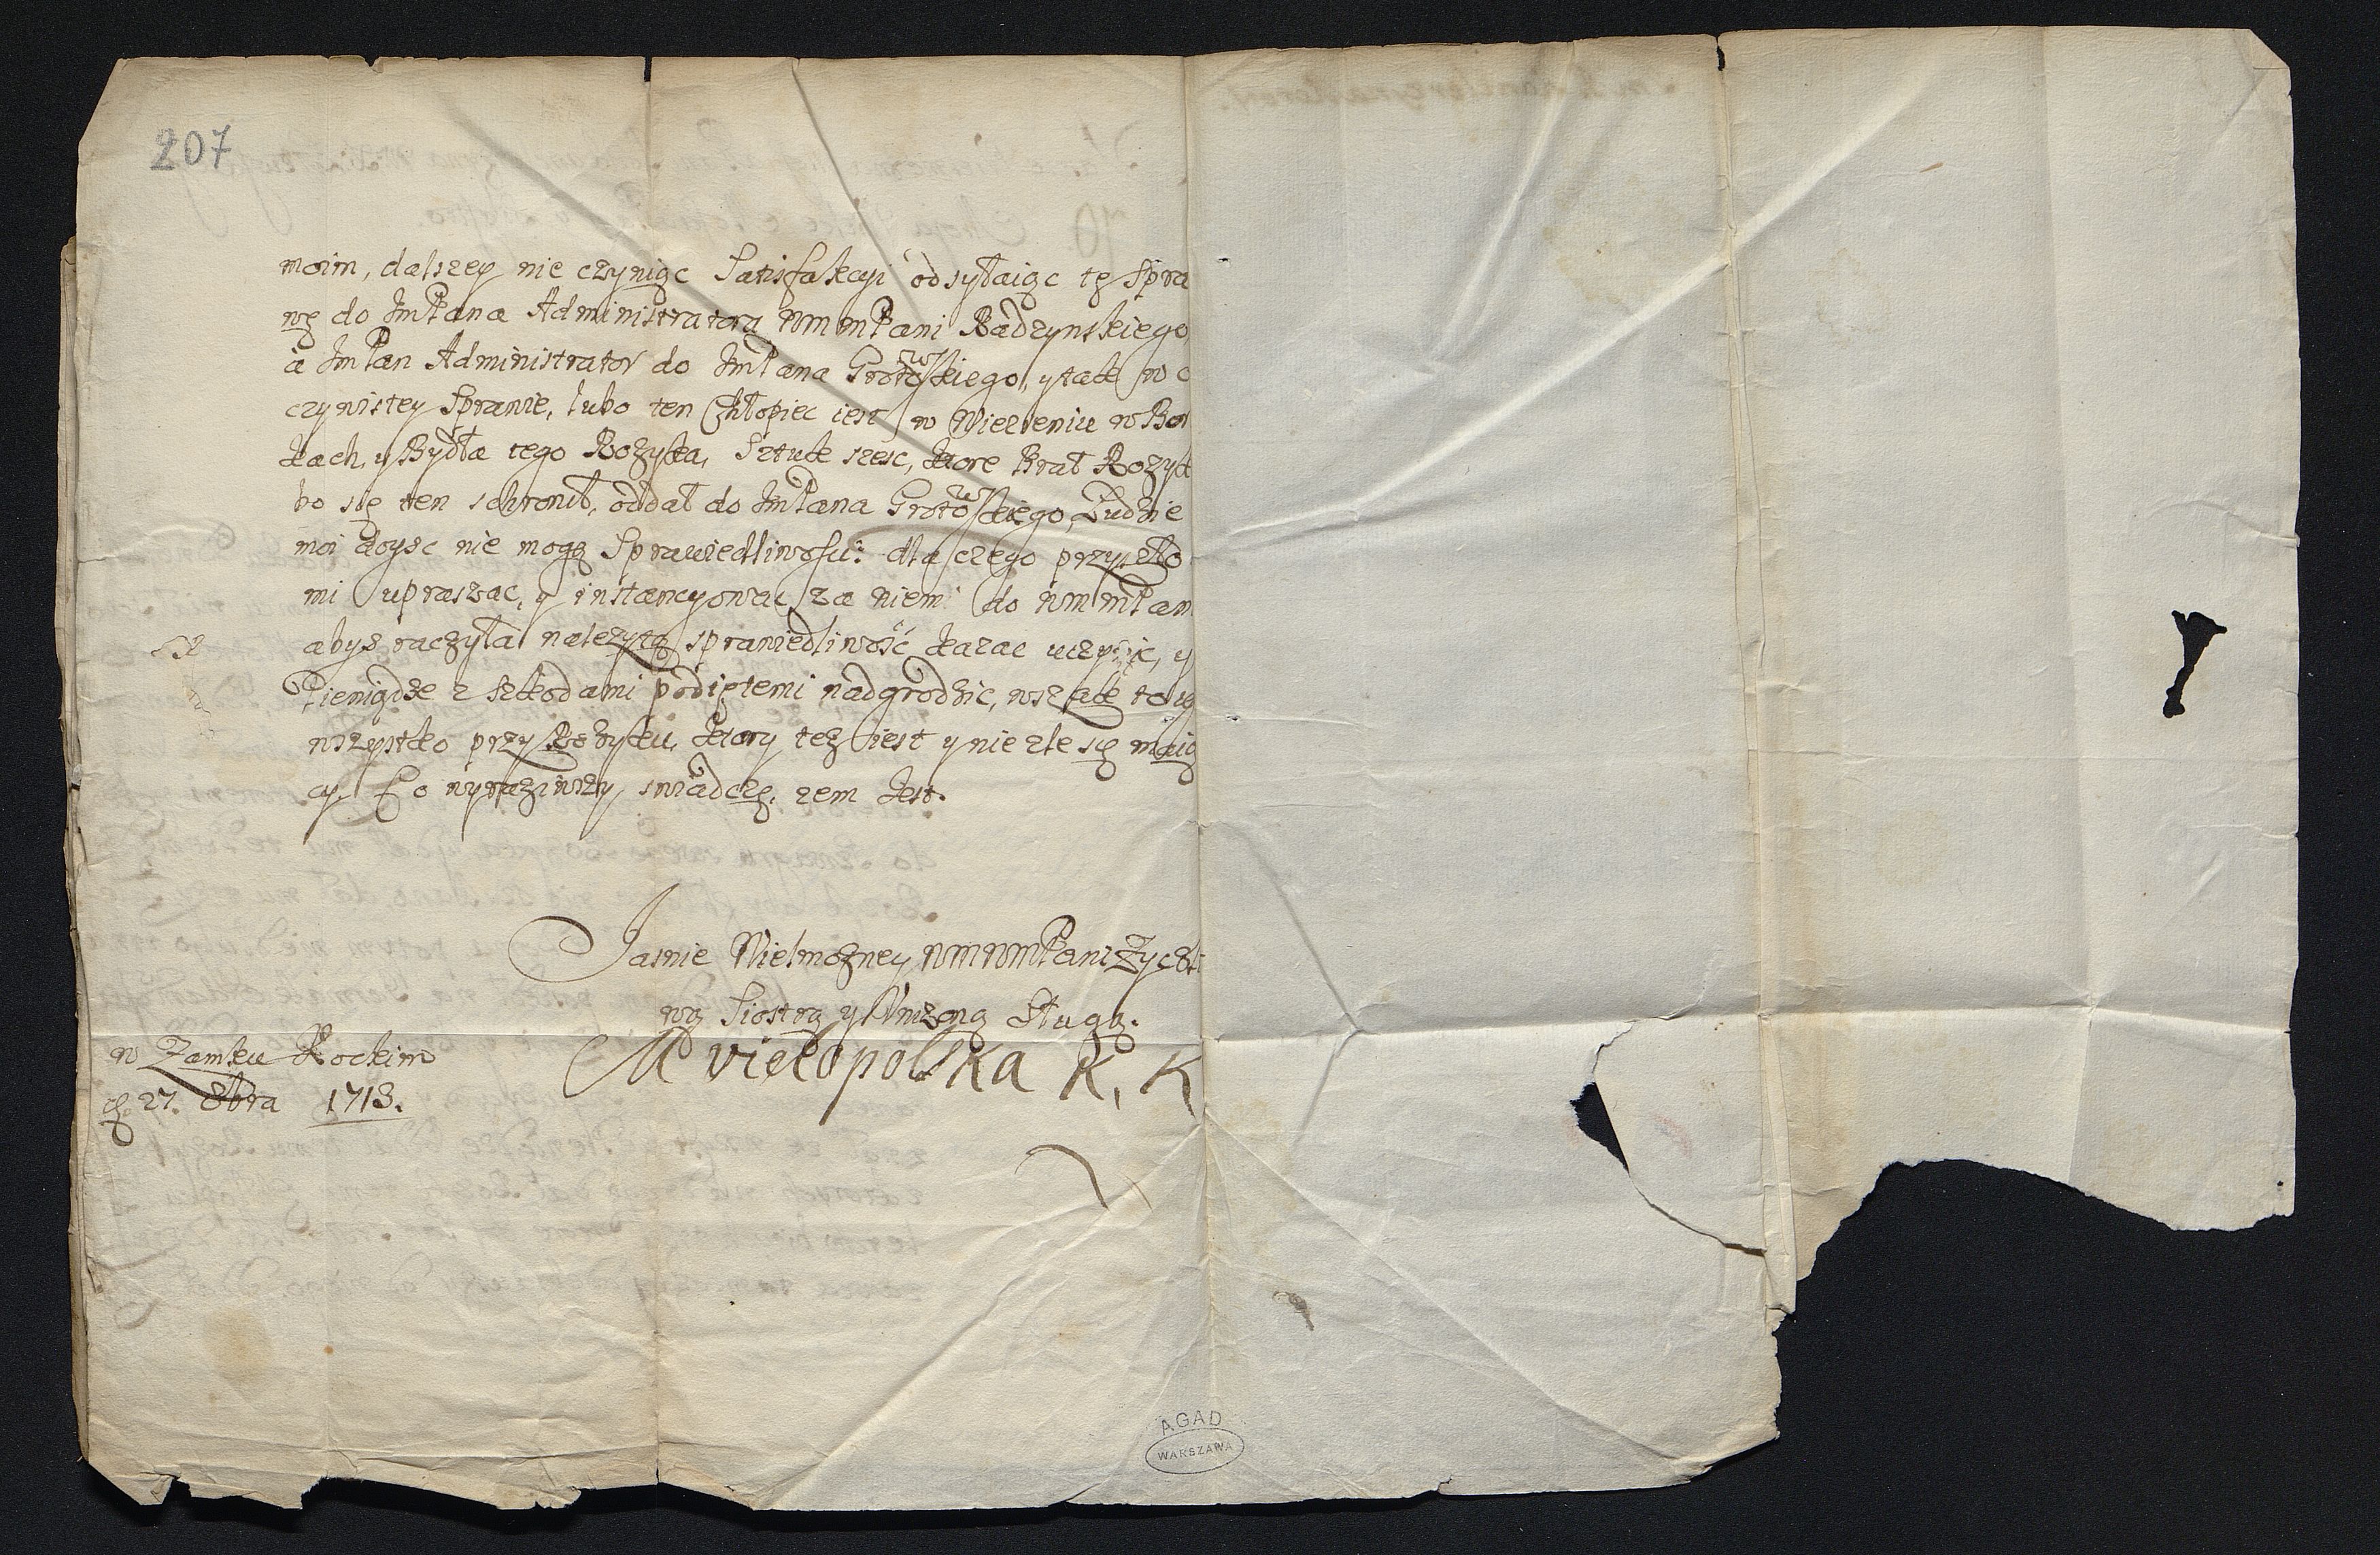 207
moim, dalszey nie czyniąc Satisfakcyi odsyłaiąc tę Spra
wę do ImPana Administratora WMMPani Radzynskiego
a ImPan Administrator do ImPana Grotowskiego, y tak w o
czywistey Sprawie, lubo ten Chłopiec iest w Wiezieniu w Bor
kach, y Bydła tego Rożyka, Sztuk szesc, ktore Brat Rozyk
bo się ten schronił, oddał do ImPana Grotowskiego, Ludzie
moi doysc nie mogą Sprawiedliwosci: dla czego przyszło
mi upraszac, y instancyowac za niemi do WMMPani
abyś raczyła należytą sprawiedliwość kazac uczynic, y
Pieniądze z szkodami podiętemi nadgrodzic, wszak to ie
wszystko przy Rożyku, ktory też iest y nie zle się maią
cy. Co wyraziwszy swiadczę, zem iest.
Jasnie Wielmożney WMWMPani Życzli
wą Siostrą y Unizoną Sługą.
M vielopolska K, K
w Zamku Kockim
d. 27. 8bra 1718.
AGAD
WARSZAWA